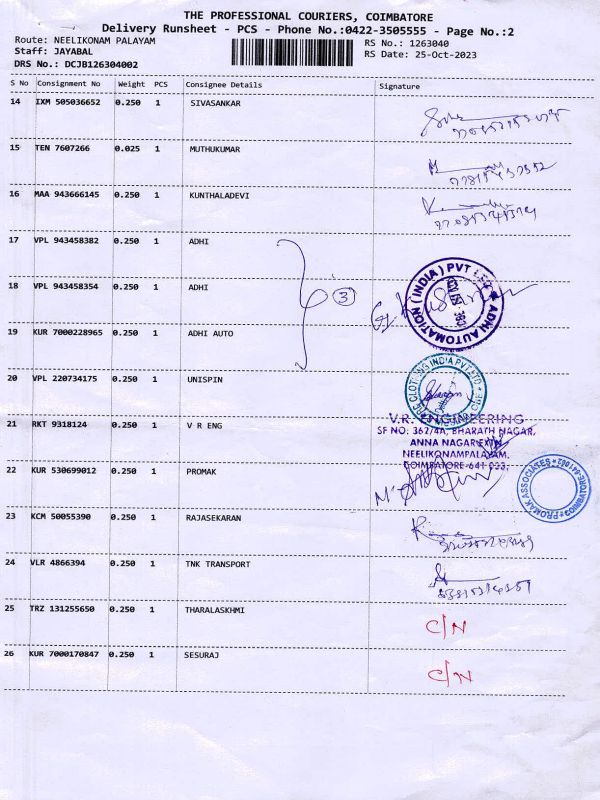 THE PROFESSIONAL COURIERS, COIMBATORE
Delivery Runsheet - PCS - Phone No.:0422-3505555 - Page No.:2
Route: NEELIKONAM PALAYAM
RS No.: 1263040
Staff: JAYABAL
RS Date: 25-Oct-2023
DRS No.: DCJB126304002
S No Consignment No Weight PCS Consignee Details Signature
14 IXM 505036652 0.250 1 SIVASANKAR
15 TEN 7607266 0.025 1 MUTHUKUMAR
16 MAA 943666145 0.250 1 KUNTHALADEVI
17 VPL 943458382 0.250 1 ADHI
18 VPL 943458354 0.250 1 ADHI
3
ADHI AUTOMATION (INDIA) PVT LTD
19 KUR 7000228965 0.250 1 ADHI AUTO
20 VPL 220734175 0.250 1 UNISPIN
CLOTHING INDIA PVT LTD
21 RKT 9318124 0.250 1 V R ENG
V.R. ENGINEERING
SF NO: 362/4A, BHARATH NAGAR,
ANNA NAGAR EXTN
NEELIKONAMPALAYAM,
COIMBATORE-641 033.
22 KUR 530699012 0.250 1 PROMAK
PROMAK ASSOCIATES
23 KCM 50055390 0.250 1 RAJASEKARAN
24 VLR 4866394 0.250 1 TNK TRANSPORT
25 TRZ 131255650 0.250 1 THARALASKHMI
C/N
26 KUR 7000170847 0.250 1 SESURAJ
C/N